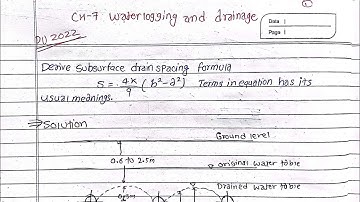 ①
CH-7 Water logging and drainage
Data |
Page |
Q1) 2022
Derive subsurface drain spacing formula
S = 4K/q (b²-a²) Terms in equation has its
usual meanings.
⇒ Solution
Ground level
0.6 to 2.5m
original water table
Drained water table